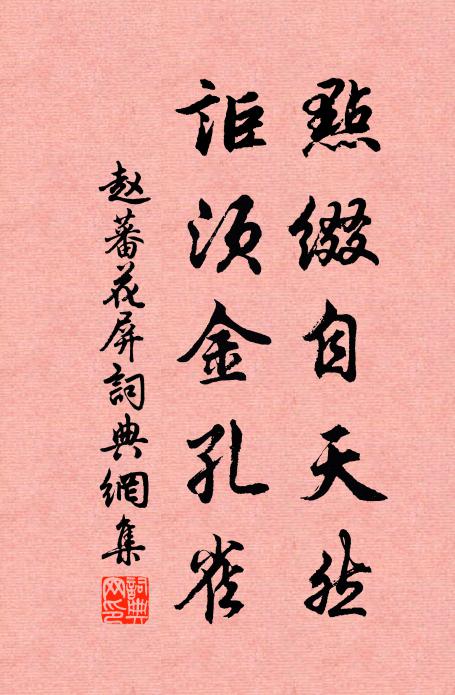 點綴自天然
詎須金孔雀
赵蕃花屏詞典網集
詞典網印